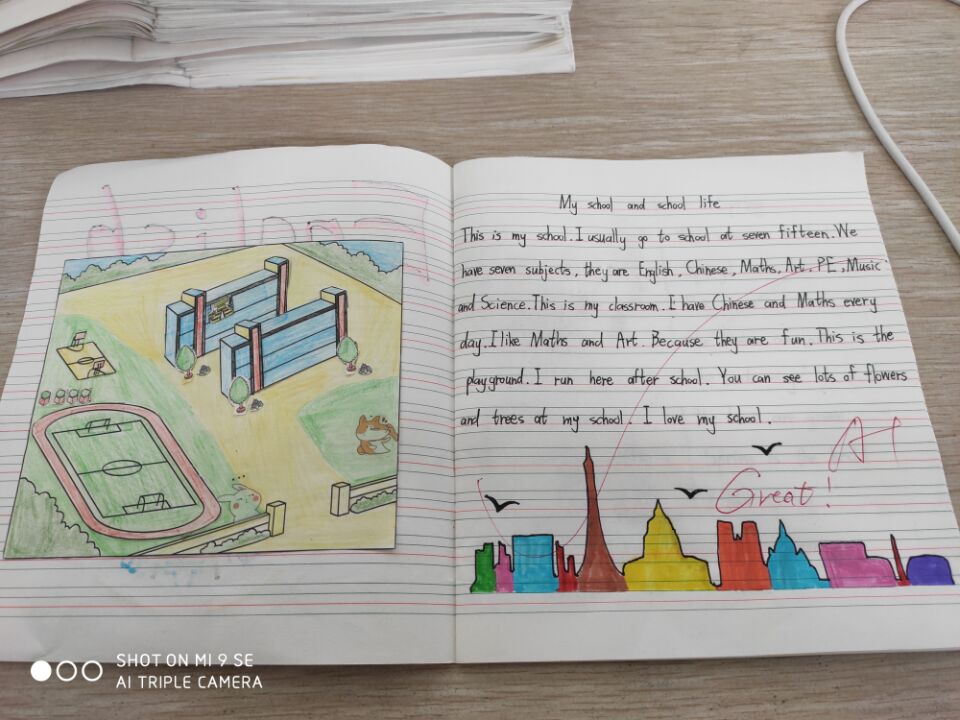 English
My school and school life
This is my school. I usually go to school at seven fifteen. We
have seven subjects, they are English, Chinese, Maths, Art, PE, Music
and Science. This is my classroom. I have Chinese and Maths every
day. I like Maths and Art. Because they are fun. This is the
playground. I run here after school. You can see lots of flowers
and trees at my school. I love my school.
A+
Great!
SHOT ON MI 9 SE
AI TRIPLE CAMERA